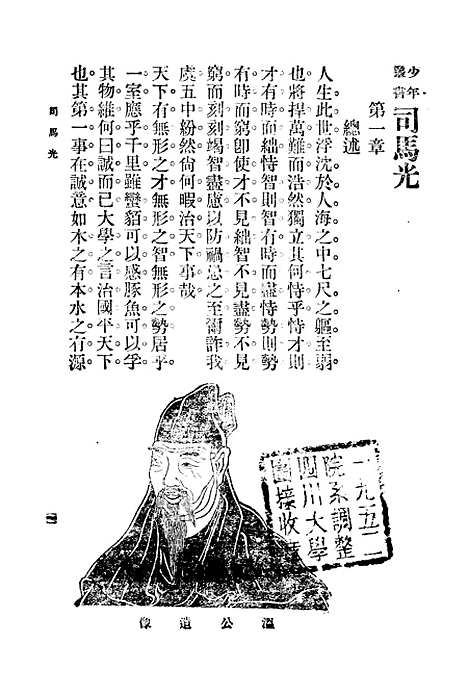 少年叢書
司馬光
第一章
總述
人生此世浮沈於人海之中七尺之軀至弱
也將捍萬難而浩然獨立其何恃乎恃才則
才有時而絀恃智則智有時而盡恃勢則勢
有時而窮卽使才不見絀智不見盡勢不見
窮而刻刻竭智盡慮以防禍患之至爾詐我
虞五中紛然尙何暇治天下事哉
天下有無形之才無形之智無形之勢居乎
一室應乎千里雖蠻貊可以感豚魚可以孚
其物維何曰誠而已大學之言治國平天下
也其第一事在誠意如水之有本水之有源
司馬光
一
一九五二
院系調整
四川大學
圖接收
溫公遺像